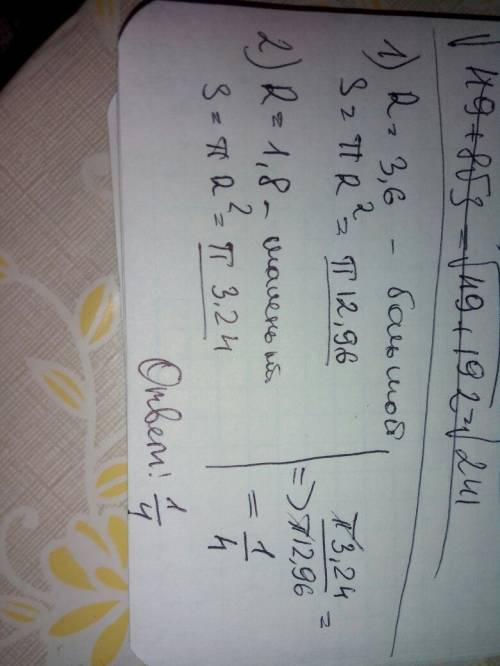 √49+8√3 = √49+192 = √241
1) R = 3,6 - большой
S = π R² = π 12,96
2) R = 1,8 - маленький
S = π R² = π 3,24
=> π3,24 / π12,96 =
= 1/4
Ответ: 1/4